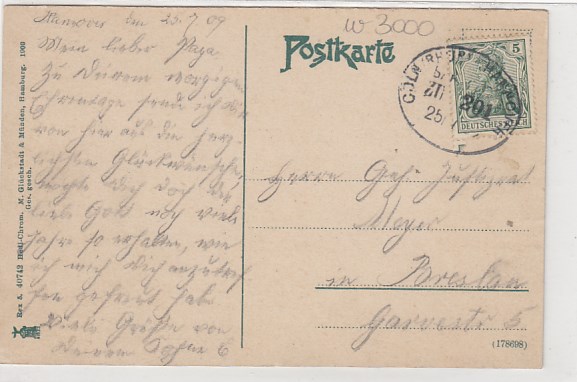 Hannover den 23.7.09
w 3000
Mein lieber Papa.
Zu Deinem morgigen
Ehrentage sende ich dir
von hier aus die herz-
lichsten Glückwünsche,
möge Dich doch der
liebe Gott noch viele
Jahre so erhalten, wie
ich mich Dich anzutref
fen gefreut habe
Viele Grüße von
Deinem Sohne
Postkarte
CÖLN (RHEIN)
25/
201
5
DEUTSCHES REICH
Herrn Geh. Justizrat
Meyer
in Breslau
Garvestr 5
(178698)
Rex &. 40742 Bild-Chrom. M. Glückstadt & Münden, Hamburg. 1903
Ges. gesch.